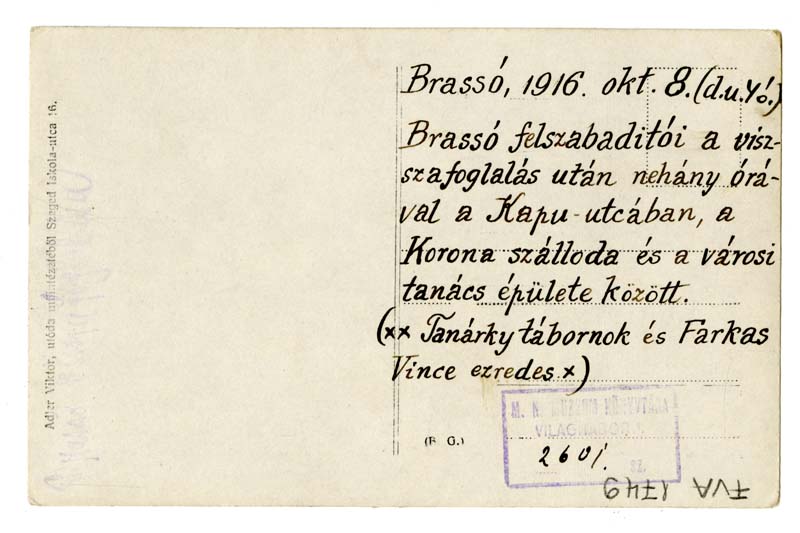 Brassó, 1916. okt. 8. (d.u. 4 ó.)
Brassó felszabaditói a visz-
szafoglalás után nehány órá-
val a Kapu-utcában, a
Korona szálloda és a városi
tanács épülete között.
(×× Tanárky tábornok és Farkas
Vince ezredes ×)
(B. G.)
M. N. MÚZEUM KÖNYVTÁRA
VILÁGHÁBORÚ
2601. SZ.
FVA 1749
Adler Viktor, utóda műintézetéből Szeged Iskola-utca 16.